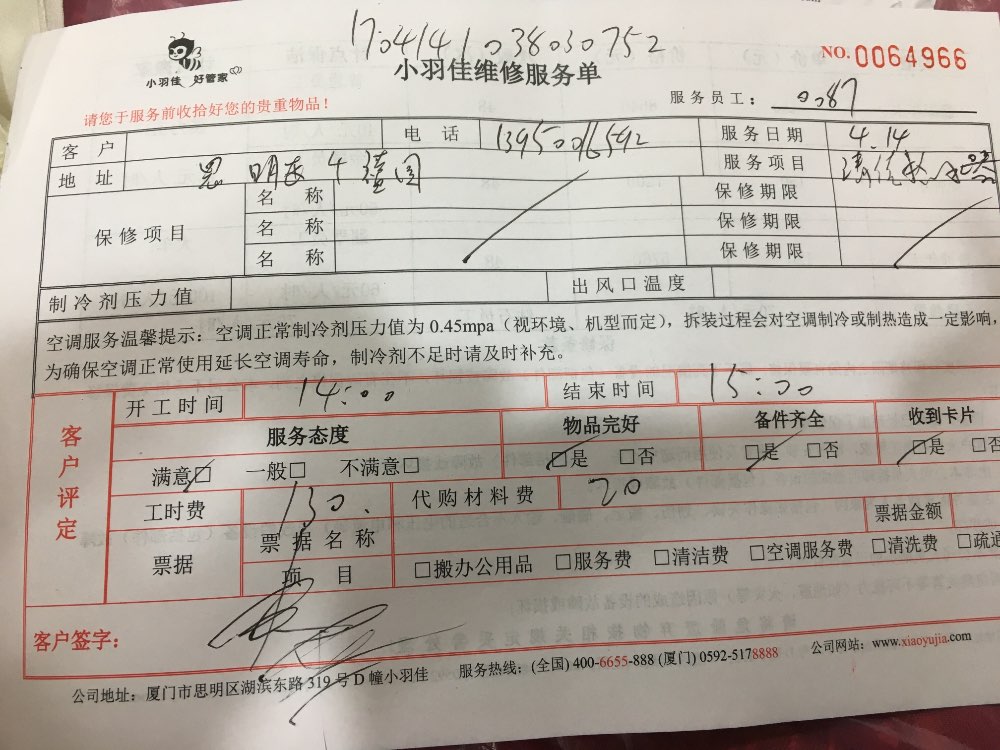 170414103803075２
小羽佳 好管家
小羽佳维修服务单
NO.0064966
请您于服务前收拾好您的贵重物品！
服务员工： 0087
客 户 电 话 13950016592 服务日期 4.14
地 址 思明 服务项目
保修项目
名 称 保修期限
名 称 保修期限
名 称 保修期限
制冷剂压力值 出风口温度
空调服务温馨提示：空调正常制冷剂压力值为 0.45mpa（视环境、机型而定），拆装过程会对空调制冷或制热造成一定影响，
为确保空调正常使用延长空调寿命，制冷剂不足时请及时补充。
客户评定
开工时间 14:00 结束时间 15:00
服务态度 物品完好 备件齐全 收到卡片
满意☑ 一般□ 不满意□ ☑是 □否 ☑是 □否 ☑是 □否
工时费 130、 代购材料费 20
票据 票据名称 票据金额
项 目 □搬办公用品 □服务费 □清洁费 □空调服务费 □清洗费 □疏通
客户签字：
公司地址：厦门市思明区湖滨东路 319 号 D 幢小羽佳 服务热线：(全国) 400-6655-888 (厦门) 0592-5178888 公司网站：www.xiaoyujia.com